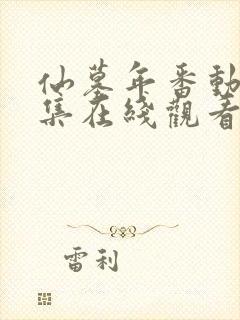 仙墓年番動
集在綫觀看
雷利